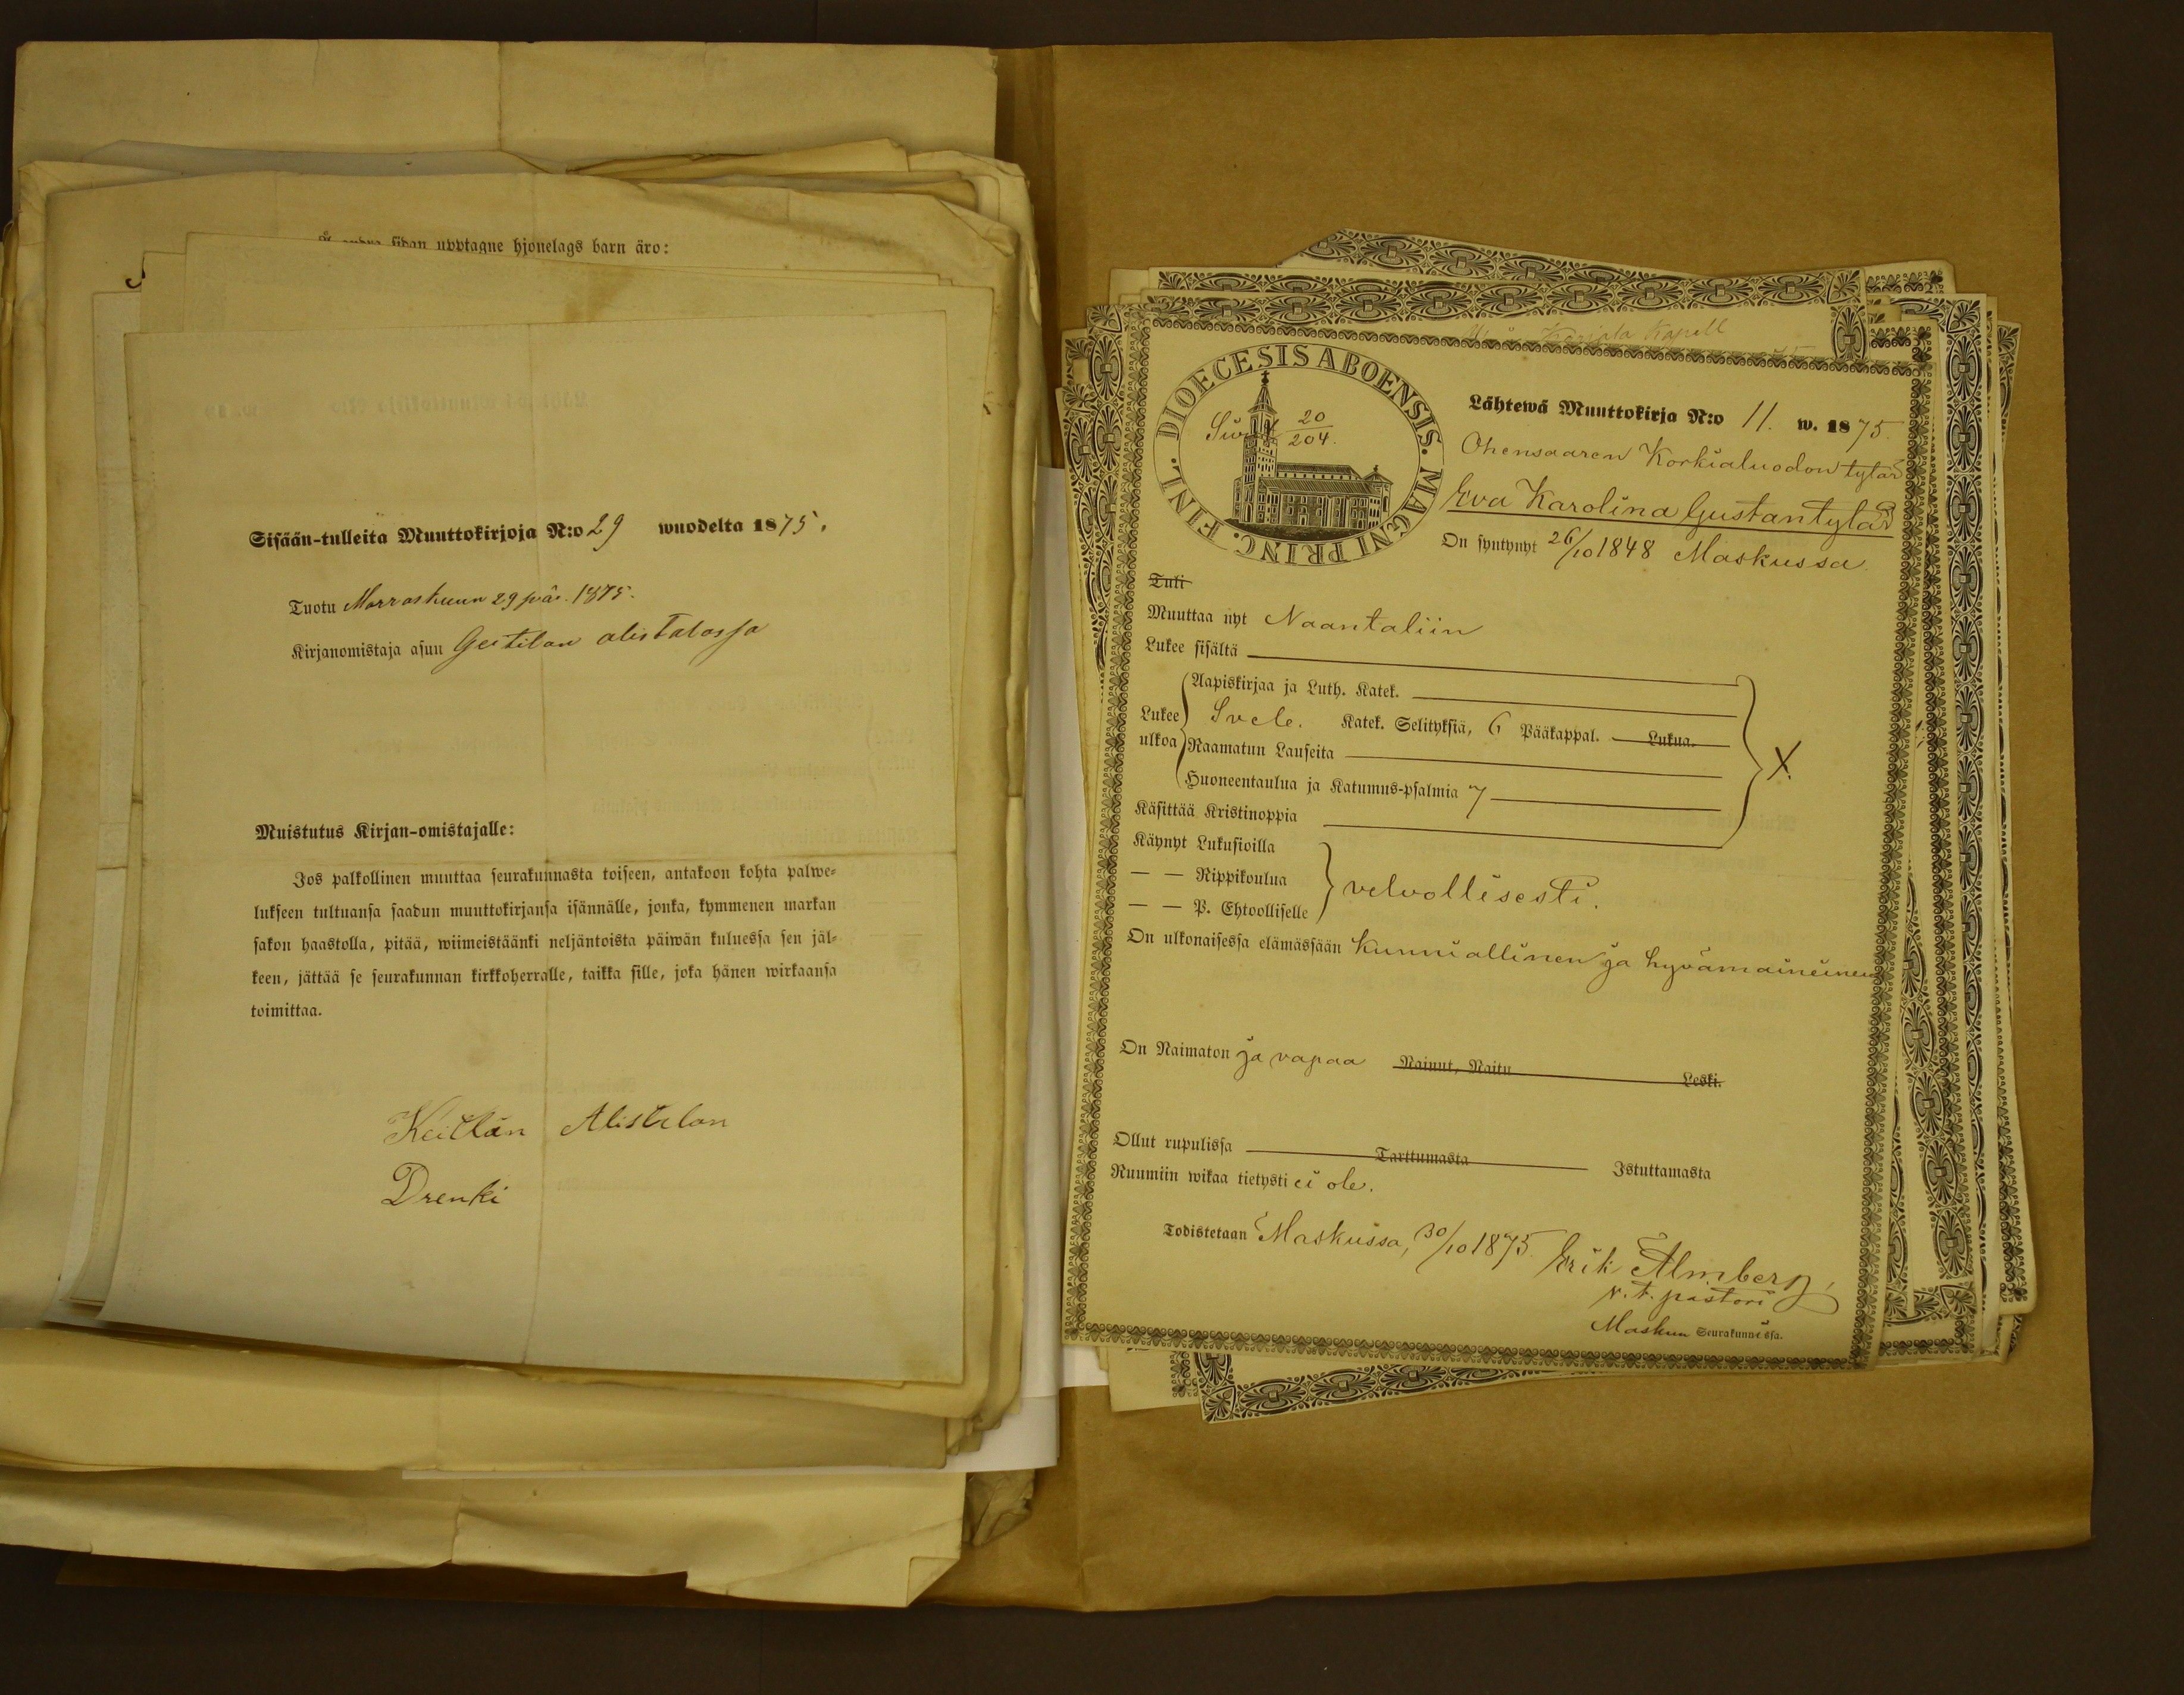 sidan upptagne hjonelags barn äro:
Sisään-tulleita Muuttokirjoja N:o 29 wuodelta 1875.
Tuotu Marraskuun 29 päi. 1875.
Kirjanomistaja asun Geitilan alistalossa
Muistutus Kirjan-omistajalle:
Jos palkollinen muuttaa seurakunnasta toiseen, antakoon kohta palwe-
lukseen tultuansa saadun muuttokirjansa isännälle, jonka, kymmenen markan
sakon haastolla, pitää, wiimeistäänki neljäntoista päiwän kuluessa sen jäl-
keen, jättää se seurakunnan kirkkoherralle, taikka sille, joka hänen wirkaansa
toimittaa.
Keitlän Alistelon
Drenki
Karjala Kapell
DIOECESIS ABOENSIS. MAGNI PRINC. FINL.
Siv. 20/204.
Lähtewä Muuttokirja N:o 11. w. 1875.
Ohensaaren Korkialuodon tytär
Eva Karolina Gustantytär
On syntynyt 26/10 1848 Maskussa
Tuli
Muuttaa nyt Naantaliin
Lukee sisältä
Lukee ulkoa
Aapiskirjaa ja Luth. Katek.
Svele. Katek. Selityksiä, 6 Pääkappal. Lukua.
Raamatun Lauseita
Huoneentaulua ja Katumus-psalmia 7
X.
Käsittää Kristinoppia
Käynyt Lukusioilla
— — Rippikoulua
— — P. Ehtoolliselle
velvollisesti.
On ulkonaisessa elämässään kunniallinen ja hyvämaineinen
On Naimaton ja vapaa Nainut, Naitu Leski.
Ollut rupulissa Tarttumasta Istuttamasta
Ruumiin wikaa tietysti ei ole.
Todistetaan Maskussa, 30/10 1875. Erik Almberg,
v. t. pastori
Maskun Seurakunnissa.